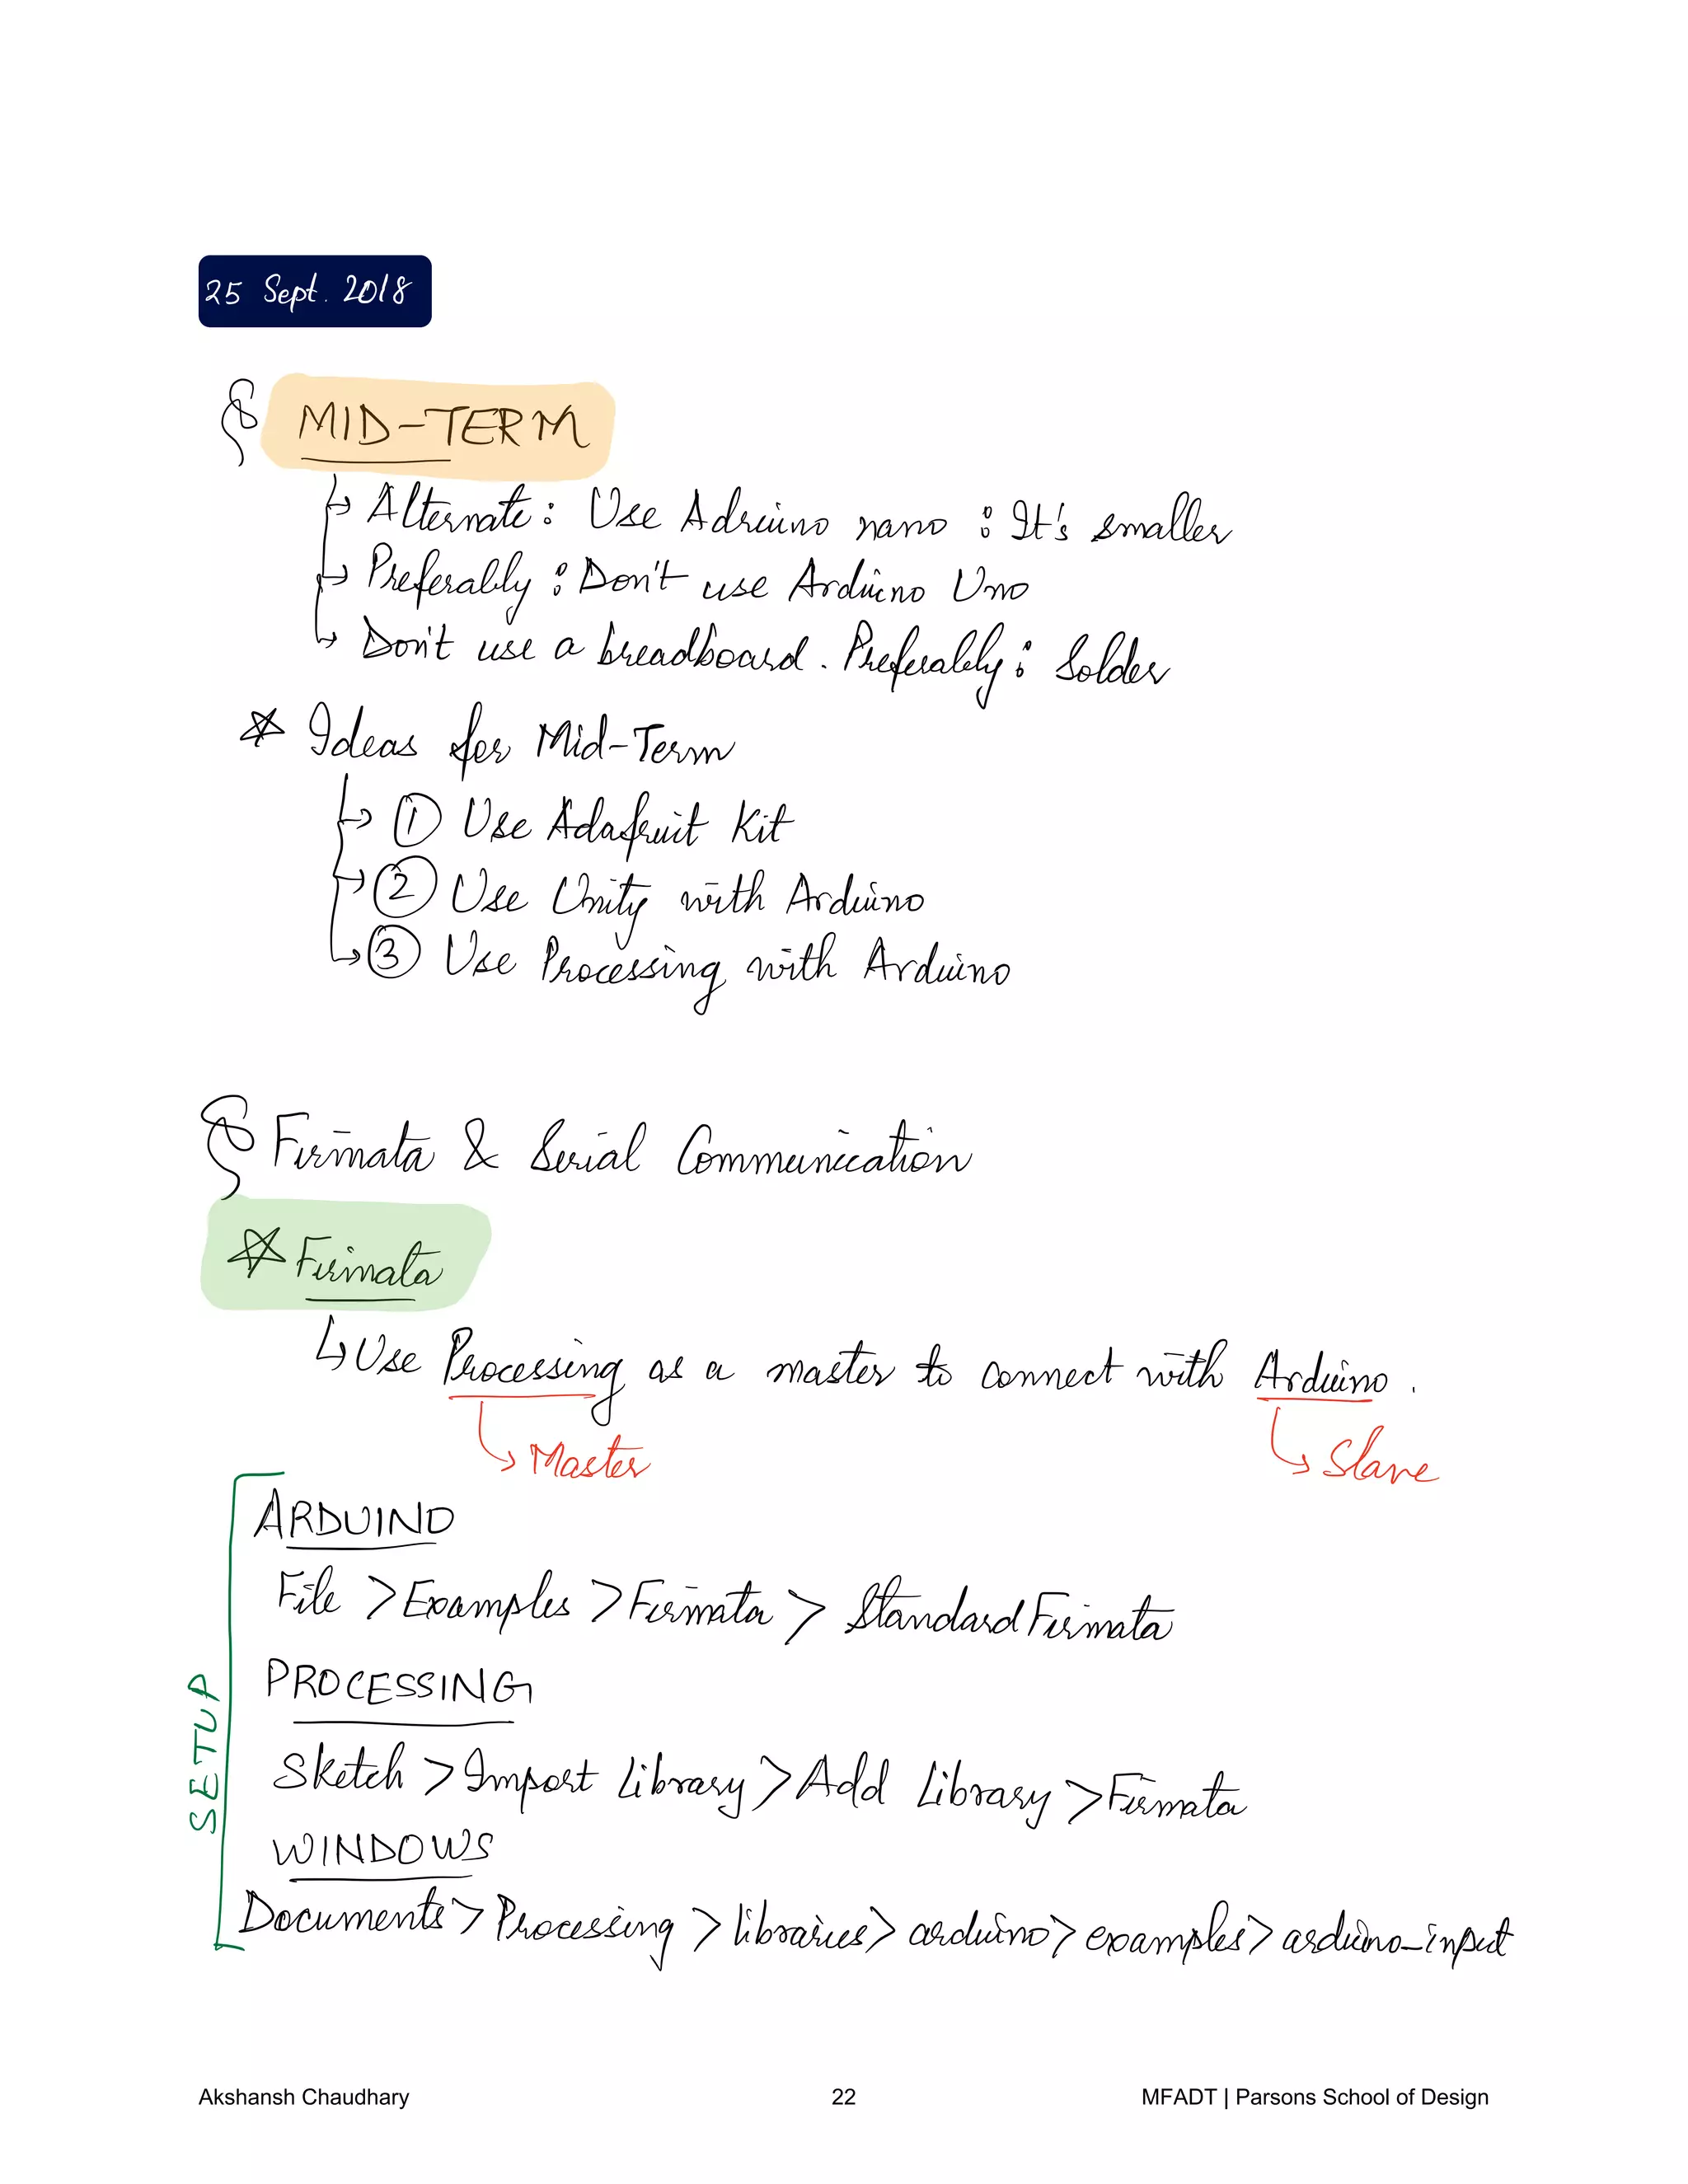 25 Sept. 2018
MID-TERM
↳ Alternate: Use Adruino nano : It's smaller
↳ Preferably : Don't use Arduino Uno
↳ Don't use a breadboard. Preferably : Solder
* Ideas for Mid-Term
↳ ① Use Adafruit Kit
↳ ② Use Unity with Arduino
↳ ③ Use Processing with Arduino
Firmata & Serial Communication
* Firmata
↳ Use Processing as a master to connect with Arduino.
↳ Master ↳ Slave
SETUP
ARDUINO
File > Examples > Firmata > StandardFirmata
PROCESSING
Sketch > Import Library > Add Library > Firmata
WINDOWS
Documents > Processing > libraries > arduino > examples > arduino_input
Akshansh Chaudhary 22 MFADT | Parsons School of Design